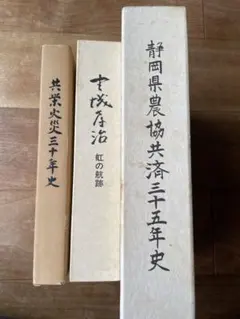 共栄火災三十年史
虹の航跡
静岡県農協共済三十五年史